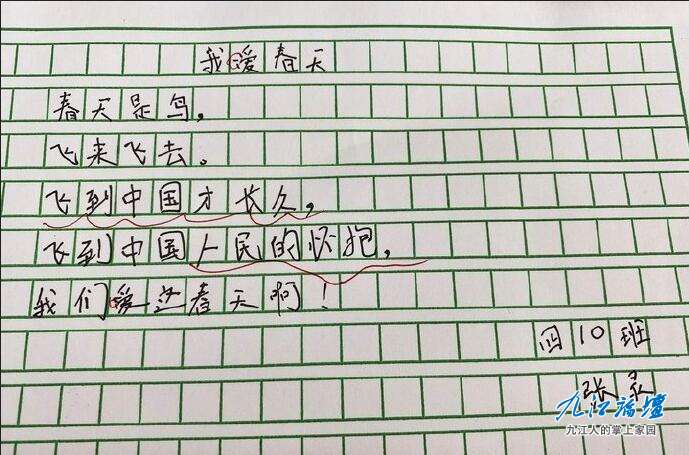 我爱春天
春天是鸟，
飞来飞去。
飞到中国才长久，
飞到中国人民的怀抱，
我们爱这春天啊！
四10班
张
九江论坛
九江人的掌上家园